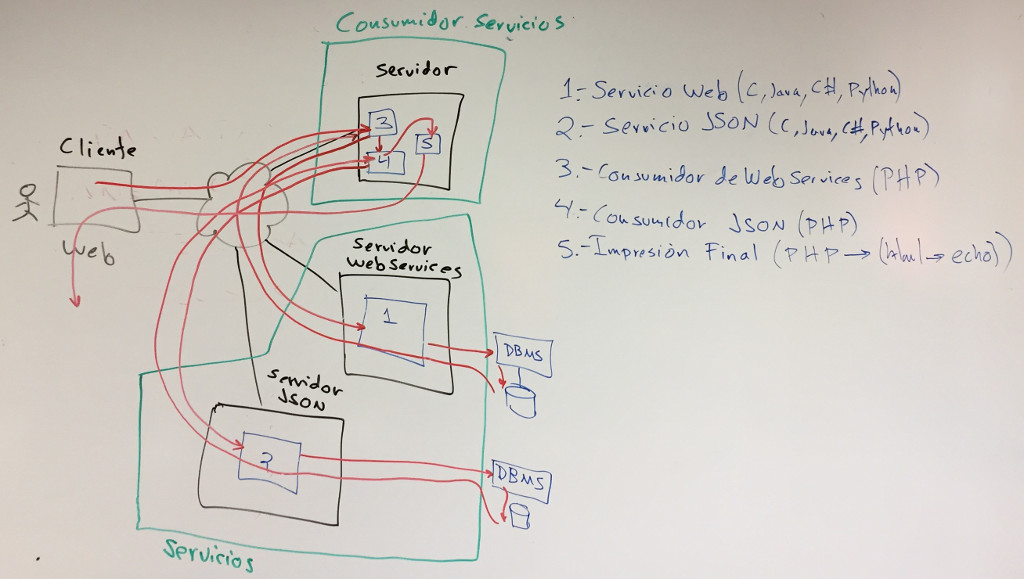 Consumidor Servicios
Servidor
3
4
5
Cliente
Web
1.- Servicio Web (C, Java, C#, Python)
2.- Servicio JSON (C, Java, C#, Python)
3.- Consumidor de WebServices (PHP)
4.- Consumidor JSON (PHP)
5.- Impresión Final (PHP → (html → echo))
Servidor
WebServices
1
DBMS
Servidor
JSON
2
DBMS
Servicios